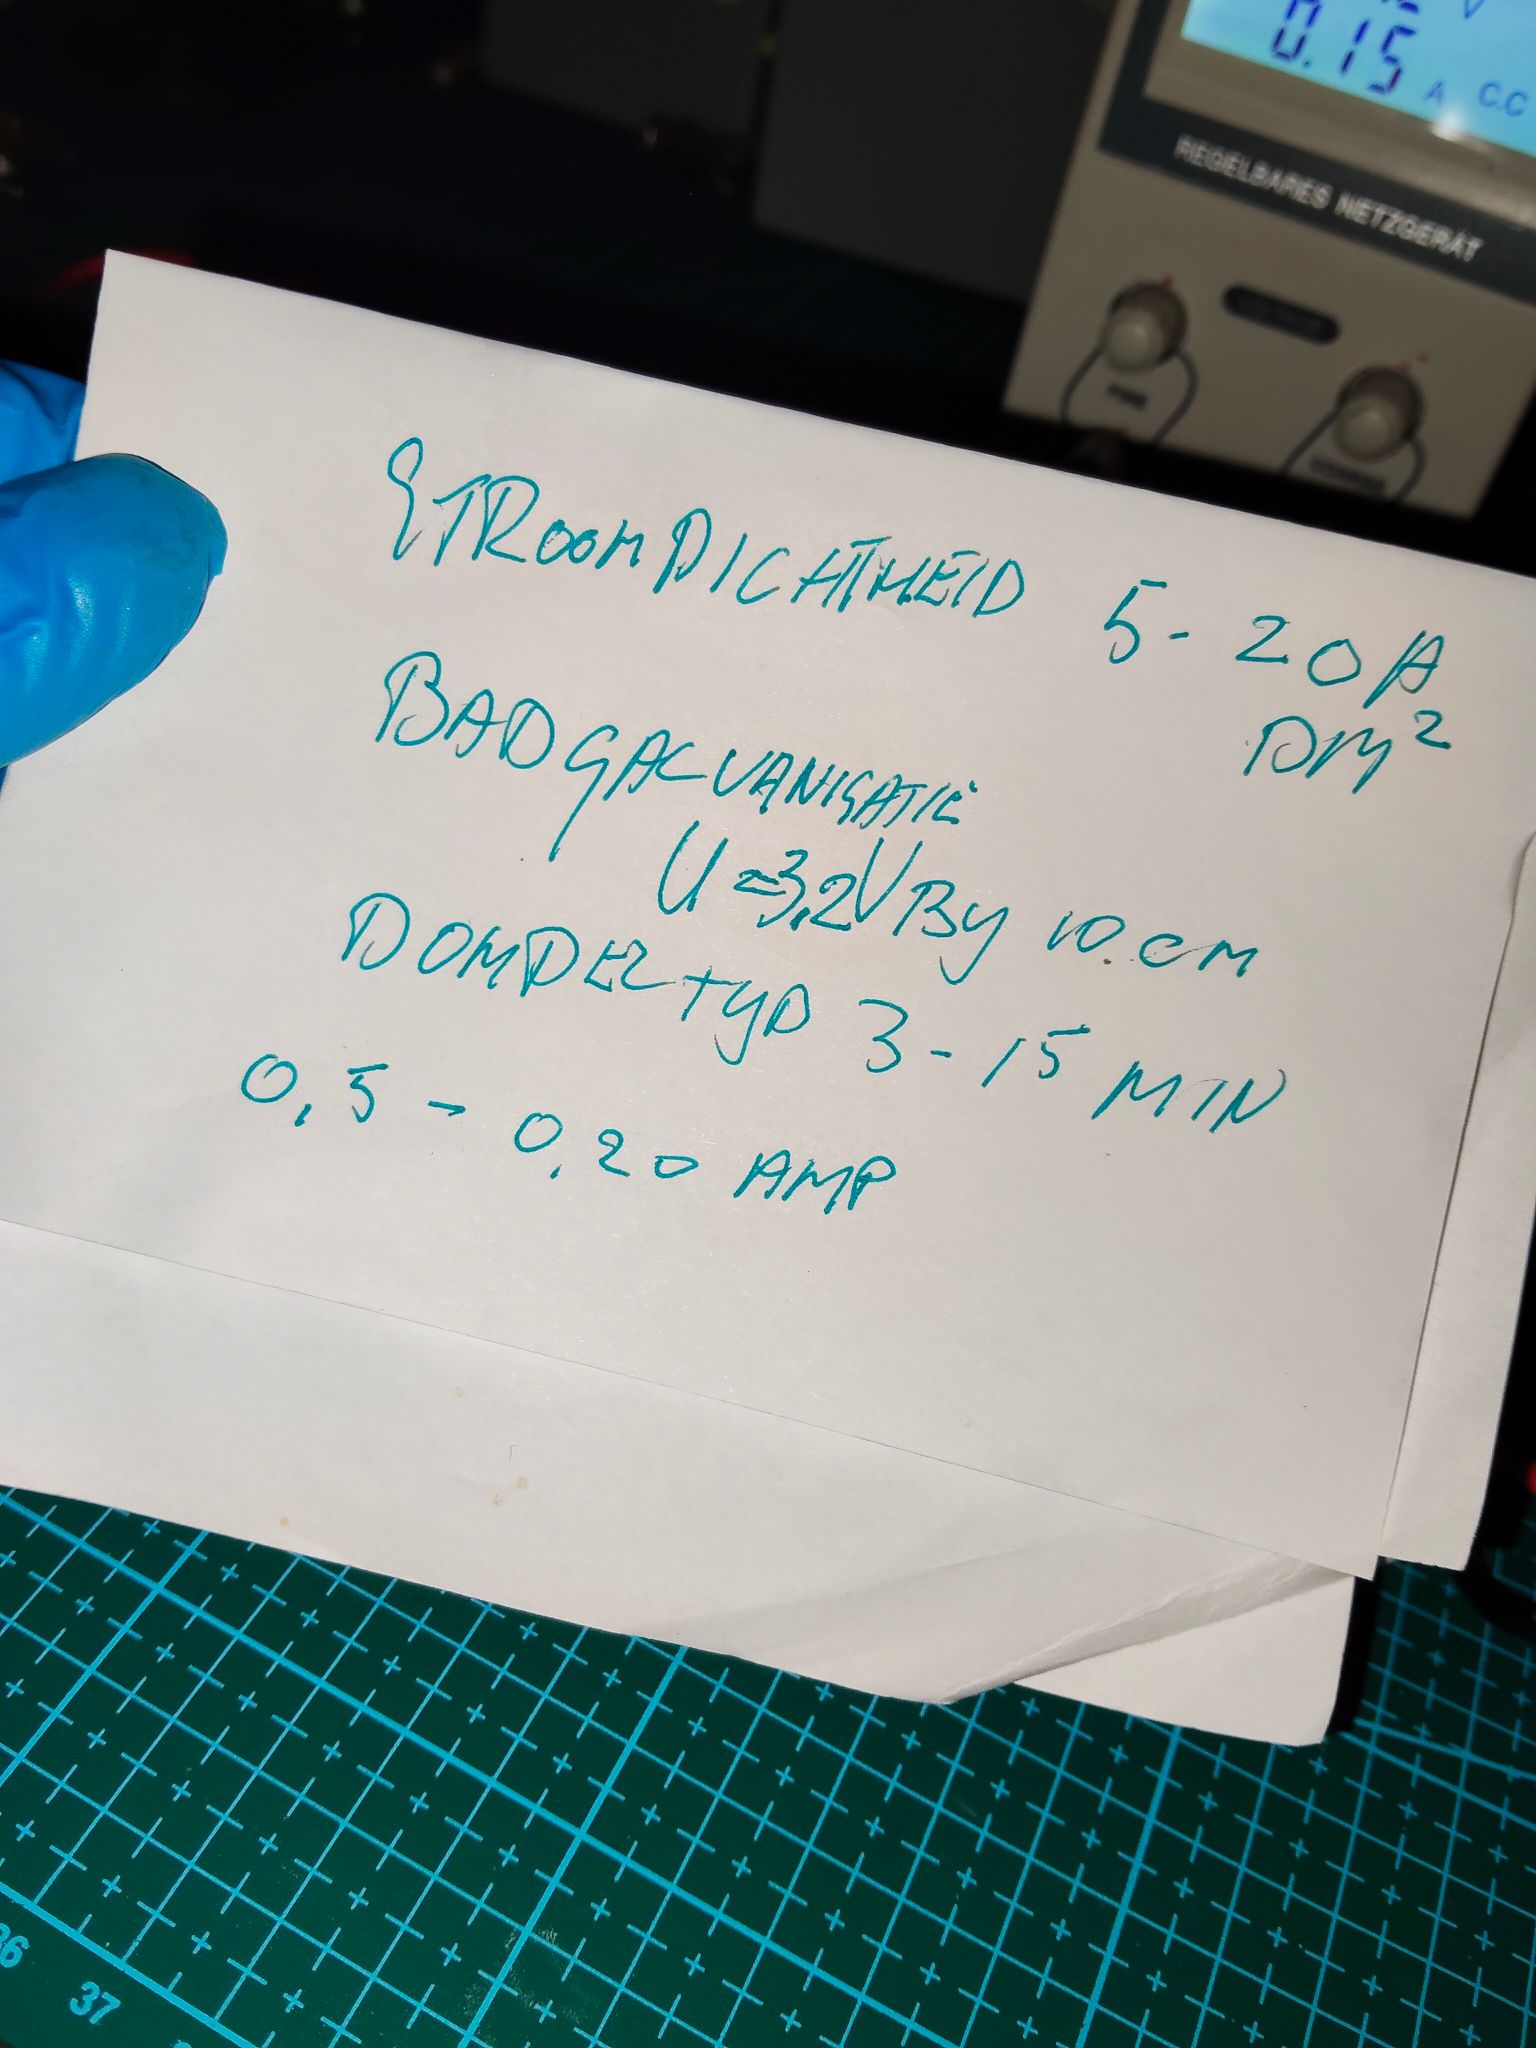 V
0.15 A C.C
REGELBARES NETZGERÄT
FINE
STROOMDICHTHEID 5-20A
DM²
BADGALVANISATIE
U=3,2V By 10.cm
DOMPELtyD 3-15 MIN
0,5 - 0,20 AMP
36
37